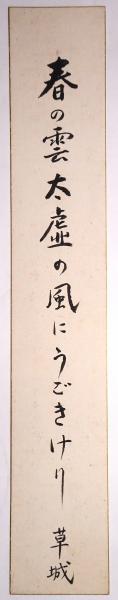 春の雲太虚の風にうごきけり
草城